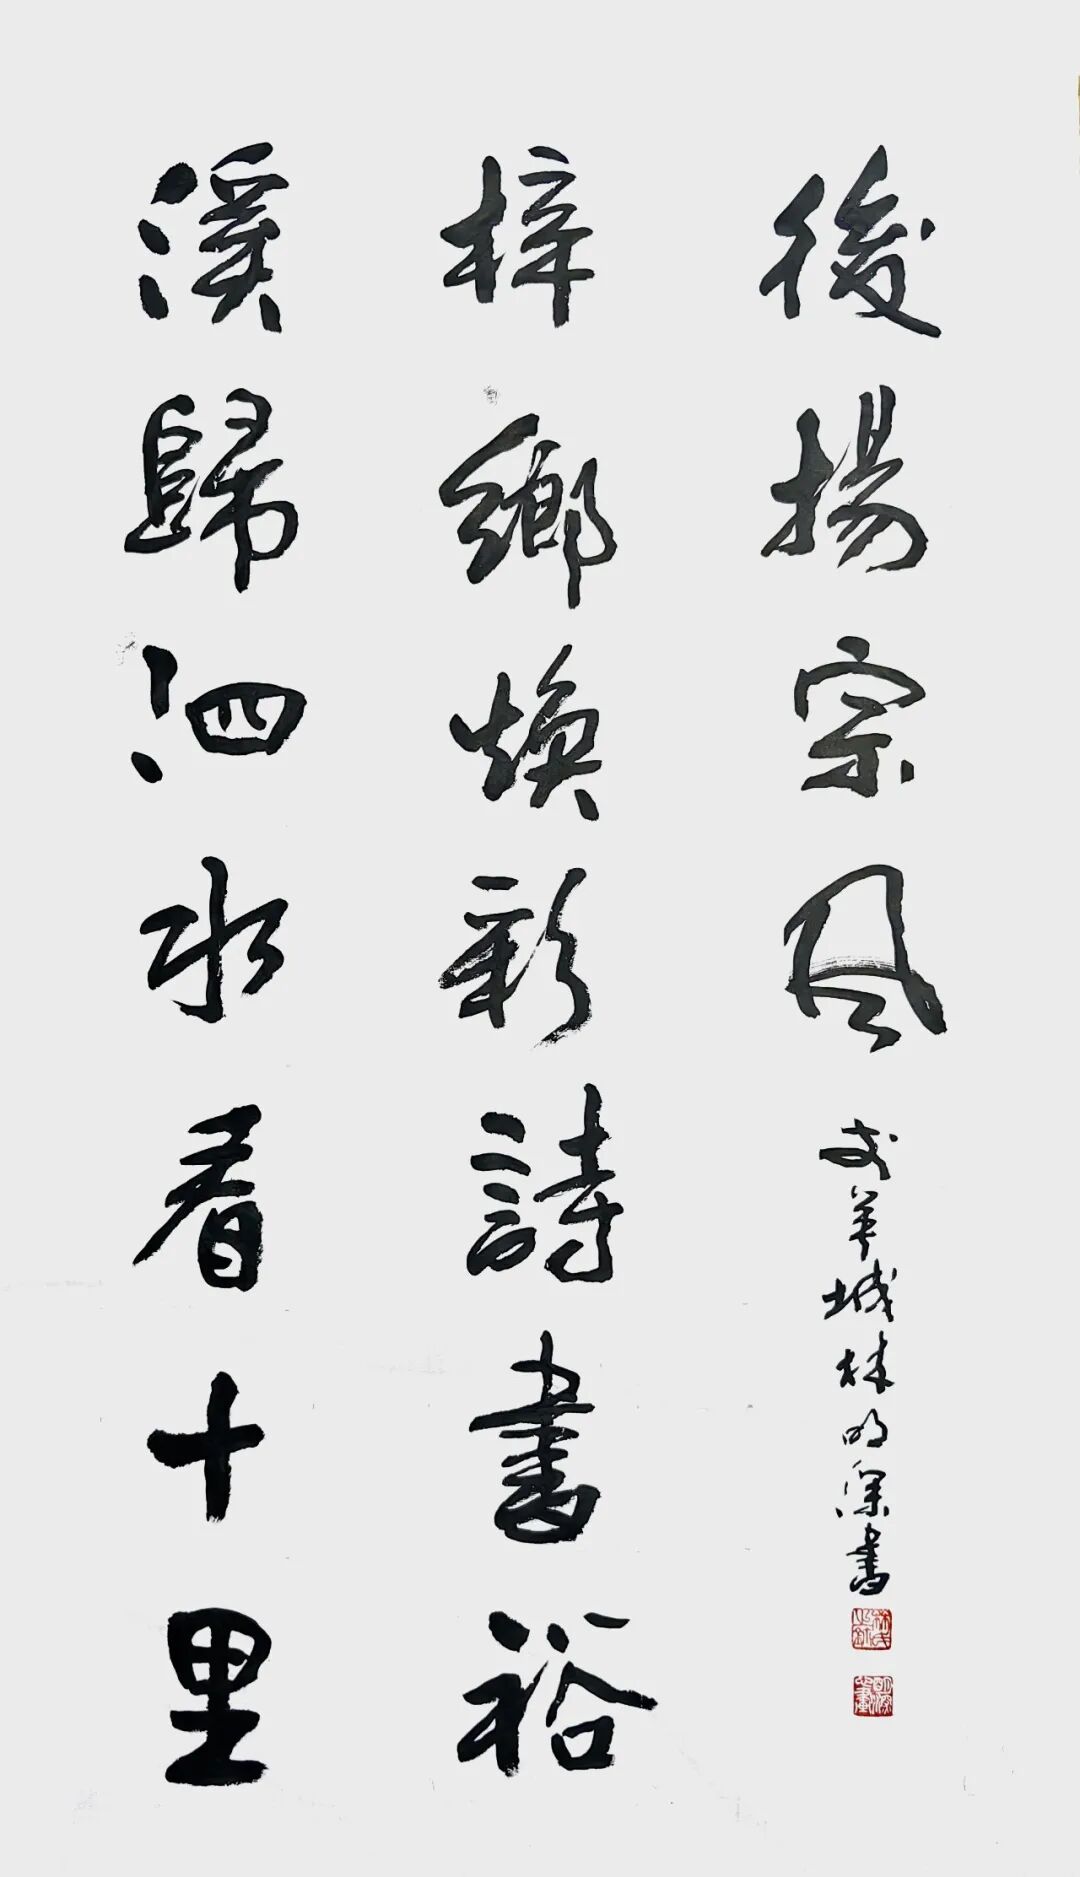 溪歸泗水看十里
梓鄉煥彩詩書裕
後揚宗風
羊城林明深書